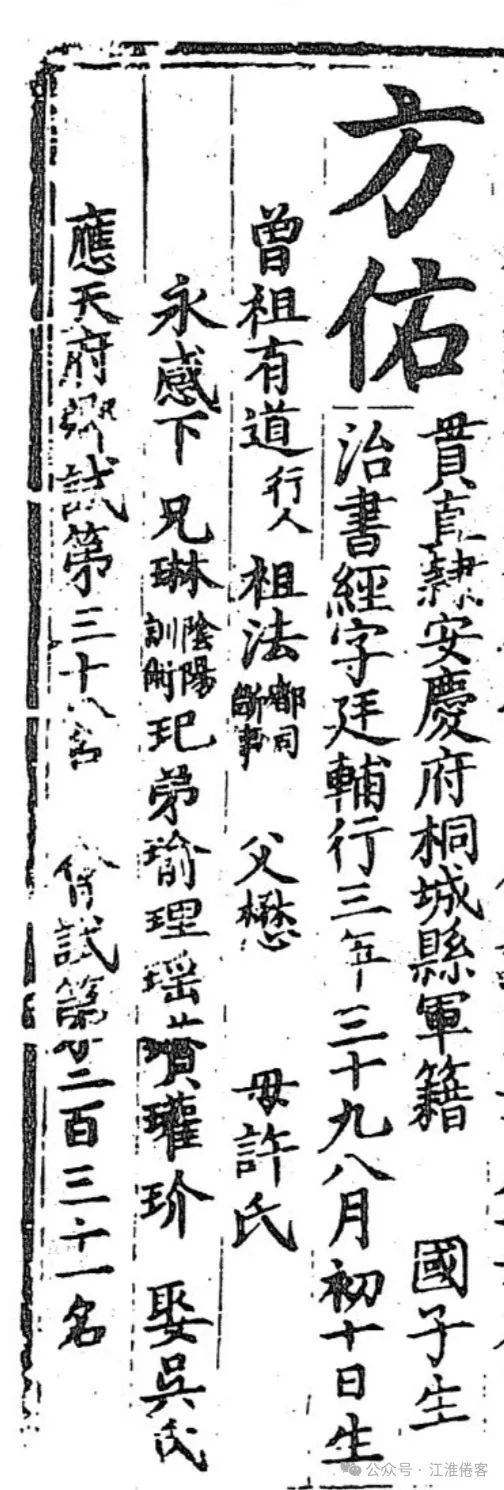 方佑
貫直隸安慶府桐城縣軍籍 國子生
治書經字廷輔行三年三十九八月初十日生
曾祖有道行人 祖法都司斷事 父懋 母許氏
永感下 兄琳陰陽訓術玘 弟瑜理瑶瓊瓘玠 娶吳氏
應天府鄉試第三十八名 會試第二百三十一名
公众号·江淮倦客